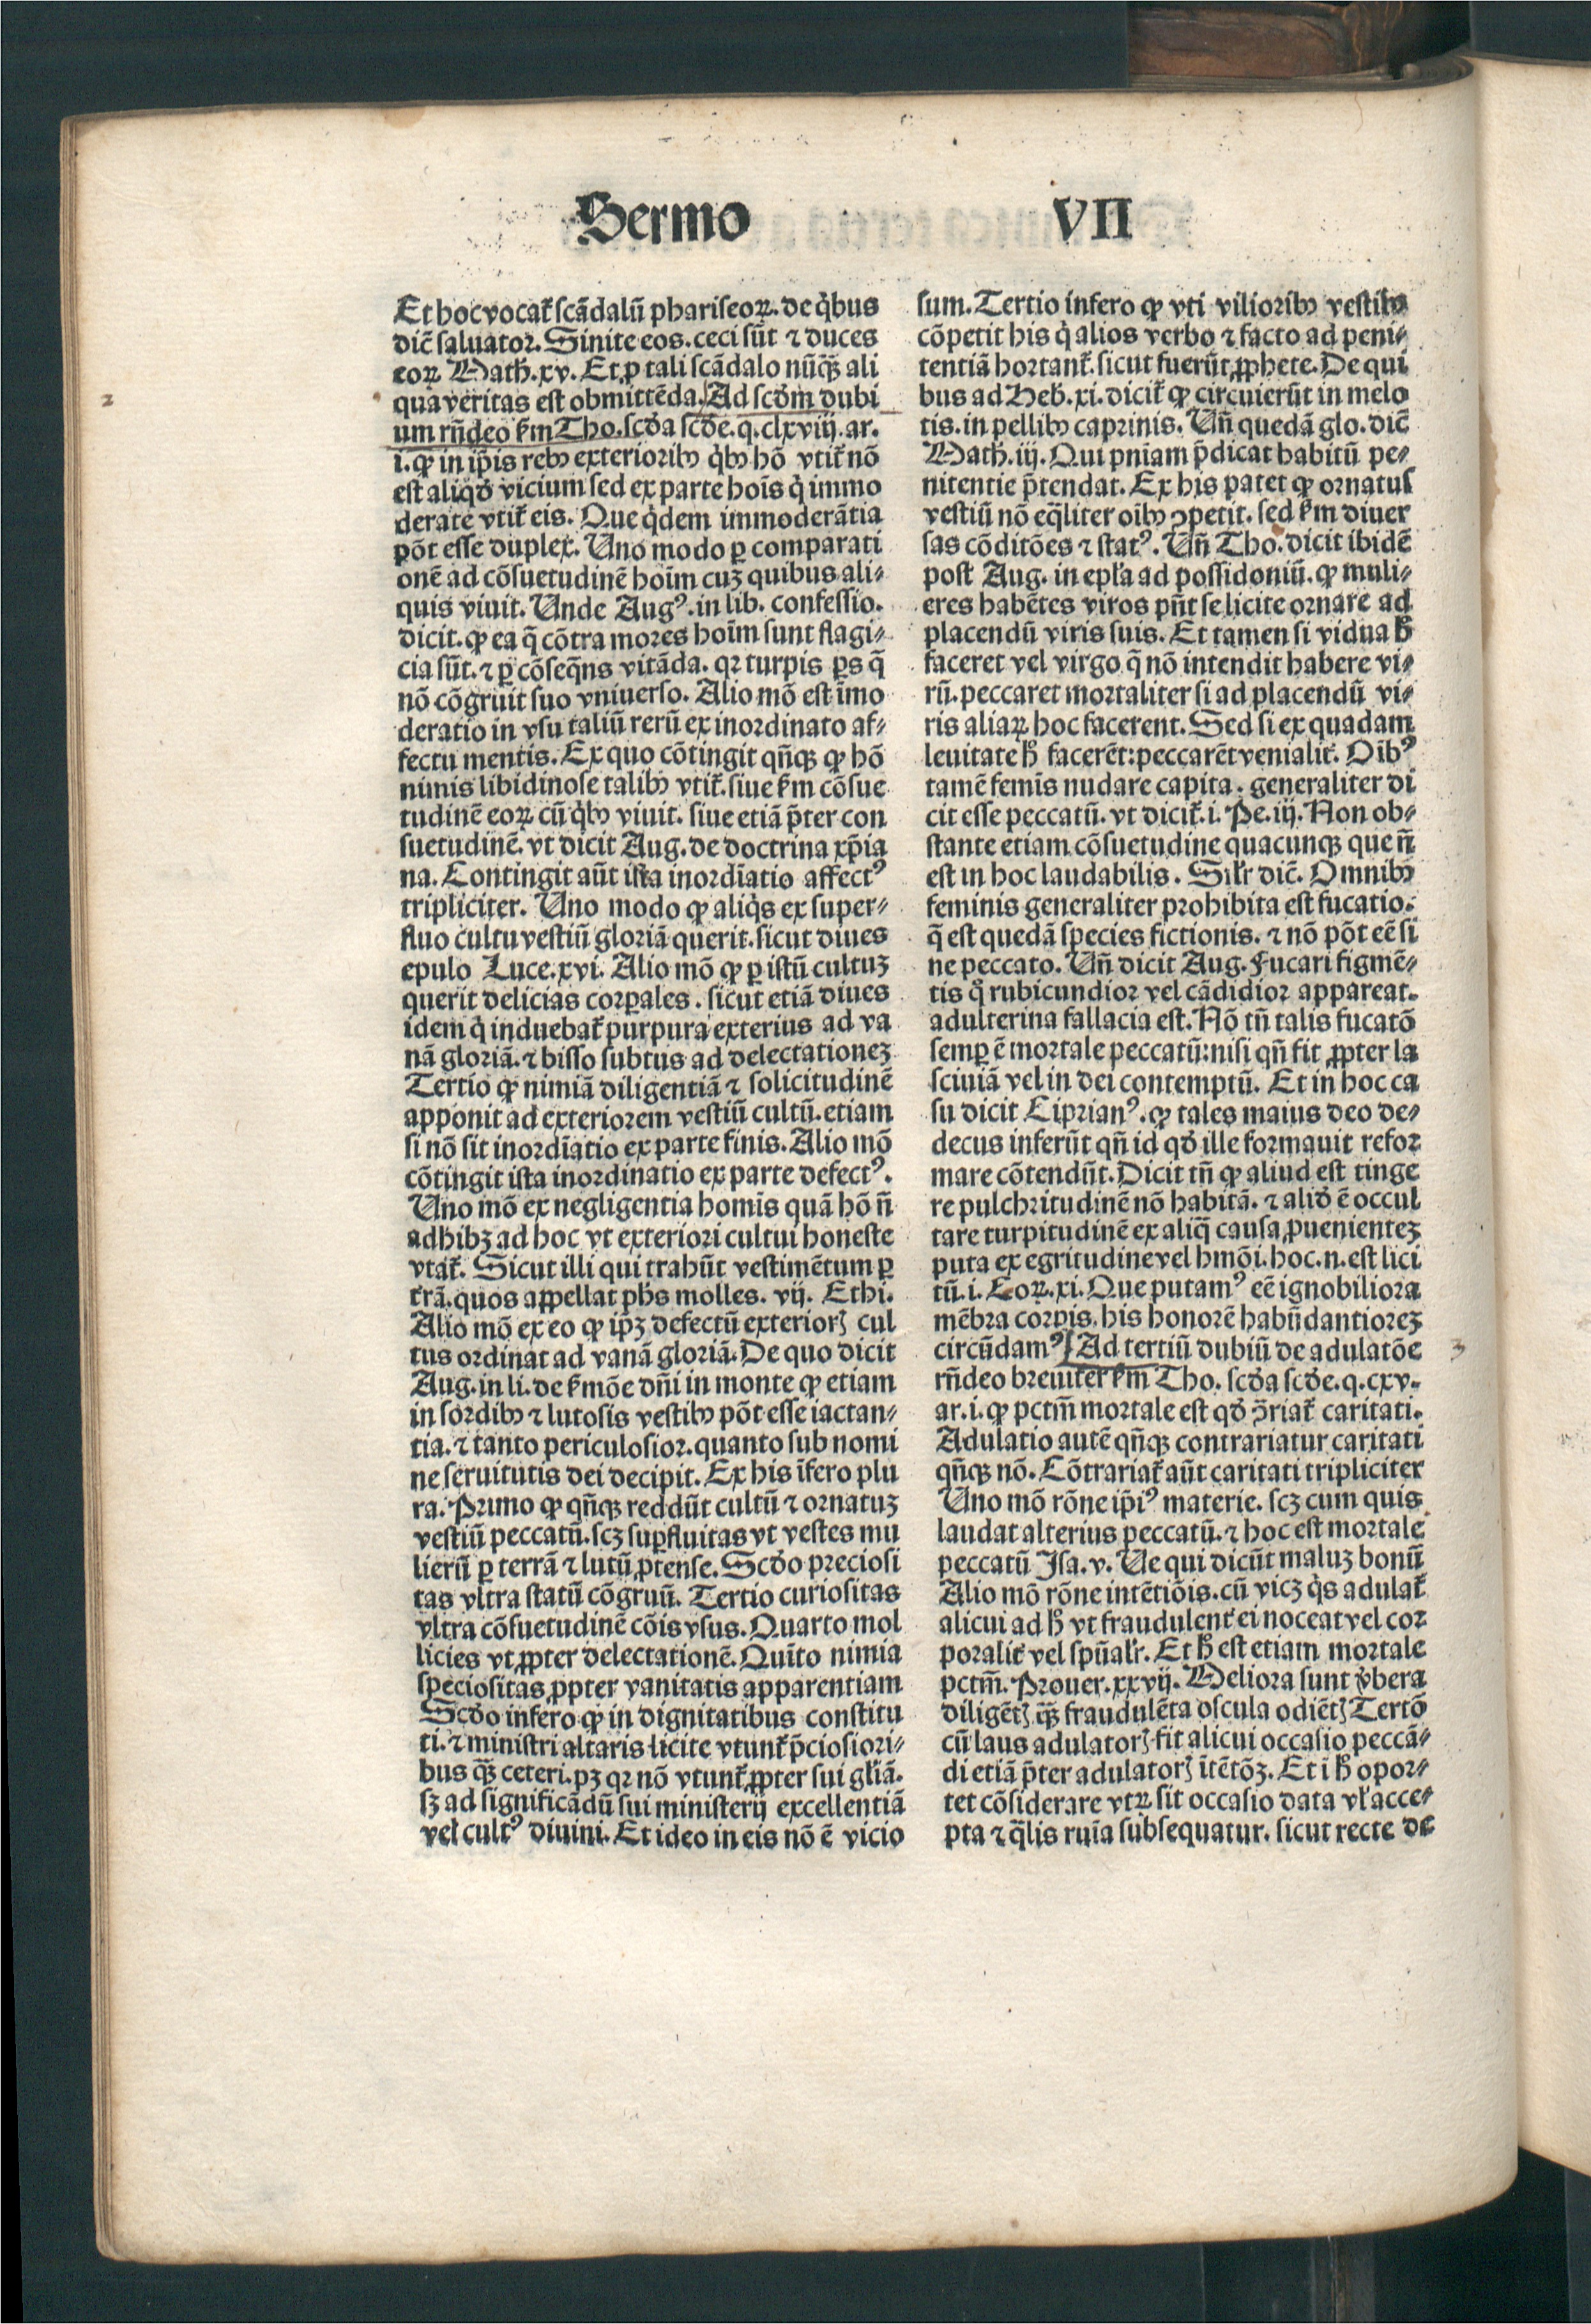 Sermo VII
Et hoc vocat᷑ scãdalũ phariseoꝝ. de q̇bus
dic̃ saluator. Sinite eos. ceci sũt ⁊ duces
eoꝝ Math̃. xv. Et ꝓ tali scãdalo nũq̃ꝫ ali
qua veritas est obmittẽda. Ad scd̃m dubi
um rñdeo ẜm Tho. scd̃a scd̃e. q. clxviij. ar.
i. ꝙ in ip̃is rebꝰ exterioribꝰ q̇bꝰ hõ vtit᷑ nõ
est aliqd̃ vicium sed ex parte hoĩs q̇ immo
derate vtit᷑ eis. Que q̇dem immoderãtia
põt esse duplex. Uno modo ꝑ comparati
onẽ ad cõsuetudinẽ hoĩm cuꝫ quibus ali⸗
quis viuit. Unde Augꝰ. in lib. confessio.
dicit. ꝙ ea q̃ cõtra mores hoĩm sunt flagi⸗
cia sũt. ⁊ ꝑ cõseq̃ns vitãda. qꝛ turpis ꝑs q̃
nõ cõgruit suo vniuerso. Alio mõ est ĩmo
deratio in vsu taliũ rerũ ex inordinato af⸗
fectu mentis. Ex quo cõtingit qñqꝫ ꝙ hõ
nimis libidinose talibꝰ vtit᷑. siue ẜm cõsue
tudinẽ eoꝝ cũ q̇bꝰ viuit. siue etiã p̃ter con
suetudinẽ. vt dicit Aug. de doctrina xp̃ia
na. Contingit aũt ista inordĩatio affectꝰ
tripliciter. Uno modo ꝙ aliq̇s ex super⸗
fluo cultu vestiũ gloriã querit. sicut diues
epulo Luce. xvi. Alio mõ ꝙ ꝑ istũ cultuꝫ
querit delicias corꝑales. sicut etiã diues
idem q̇ induebat᷑ purpura exterius ad va
nã gloriã. ⁊ bisso subtus ad delectationeꝫ
Tertio ꝙ nimiã diligentiã ⁊ solicitudinẽ
apponit ad exteriorem vestiũ cultũ. etiam
si nõ sit inordĩatio ex parte finis. Alio mõ
cõtingit ista inordinatio ex parte defectꝰ.
Uno mõ ex negligentia homĩs quã hõ ñ
adhibꝫ ad hoc vt exteriori cultui honeste
vtat᷑. Sicut illi qui trahũt vestimẽtum ꝑ
t᷑rã. quos appellat ph̃s molles. vij. Ethi.
Alio mõ ex eo ꝙ ip̃ꝫ defectũ exterioꝝ cul
tus ordinat ad vanã gloriã. De quo dicit
Aug. in li. de ẜmõe dñi in monte ꝙ etiam
in sordibꝰ ⁊ lutosis vestibꝰ põt esse iactan⸗
tia. ⁊ tanto periculosior. quanto sub nomi
ne seruitutis dei decipit. Ex his ĩfero plu
ra. Primo ꝙ qñqꝫ reddũt cultũ ⁊ ornatuꝫ
vestiũ peccatũ. scꝫ suꝑfluitas vt vestes mu
lierũ ꝑ terrã ⁊ lutũ ꝓtense. Scd̃o preciosi
tas vltra statũ cõgruũ. Tertio curiositas
vltra cõsuetudinẽ cõis vsus. Quarto mol
licies vt ꝓpter delectationẽ. Quĩto nimia
speciositas ꝓpter vanitatis apparentiam
Scd̃o infero ꝙ in dignitatibus constitu
ti. ⁊ ministri altaris licite vtunt᷑ p̃ciosiori⸗
bus q̃ꝫ ceteri. pꝫ qꝛ nõ vtunt᷑ ꝓpter sui gl̃iã.
sꝫ ad significãdũ sui ministerij excellentiã
vel cultꝰ diuini. Et ideo in eis nõ ẽ vicio
sum. Tertio infero ꝙ vti vilioribꝰ vestibꝰ
cõpetit his q̇ alios verbo ⁊ facto ad peni⸗
tentiã hortant᷑. sicut fuerũt ꝓphete. De qui
bus ad Heb̃. xi. dicit᷑ ꝙ circuierũt in melo
tis. in pellibꝰ caprinis. Uñ quedã glo. dic̃
Math̃. iij. Qui pniam p̃dicat habitũ pe⸗
nitentie p̃tendat. Ex his patet ꝙ ornatus
vestiũ nõ eq̃liter oĩbꝰ ↄpetit. sed ẜm diuer
sas cõditões ⁊ statꝰ. Uñ Tho. dicit ibidẽ
post Aug. in epl̃a ad possidoniũ. ꝙ muli⸗
eres habẽtes viros pñt se licite ornare ad
placendũ viris suis. Et tamen si vidua h̃
faceret vel virgo q̃ nõ intendit habere vi⸗
rũ. peccaret mortaliter si ad placendũ vi⸗
ris aliaꝝ hoc facerent. Sed si ex quadam
leuitate h̃ facerẽt: peccarẽt venialit᷑. Oĩbꝰ
tamẽ femĩs nudare capita. generaliter di
cit esse peccatũ. vt dicit᷑. i. Pe. iij. Non ob⸗
stante etiam cõsuetudine quacunqꝫ que ñ
est in hoc laudabilis. Sil̃r dic̃. Omnibꝰ
feminis generaliter prohibita est fucatio.
q̃ est quedã species fictionis. ⁊ nõ põt eẽ si
ne peccato. Uñ dicit Aug. Fucari figmẽ⸗
tis q̊ rubicundior vel cãdidior appareat.
adulterina fallacia est. Nõ tñ talis fucatõ
semꝑ ẽ mortale peccatũ: nisi qñ fit ꝓpter la
sciuiã vel in dei contemptũ. Et in hoc ca
su dicit Ciprianꝰ. ꝙ tales maius deo de⸗
decus inferũt qñ id qd̃ ille formauit refor
mare cõtendũt. Dicit tñ ꝙ aliud est tinge
re pulchritudinẽ nõ habitã. ⁊ alid̃ ẽ occul
tare turpitudinẽ ex aliq̃ causa ꝓuenienteꝫ
puta ex egritudine vel hmõi. hoc. n. est lici
tũ. i. Coꝝ. xi. Que putamꝰ eẽ ignobiliora
mẽbra corpis. his honorẽ habũdantioreꝫ
circũdamꝰ Ad tertiũ dubiũ de adulatõe
rñdeo breuit᷑er ẜm Tho. scd̃a scd̃e. q. cxv.
ar. i. ꝙ pctm̃ mortale est qd̃ ↄ̃riat᷑ caritati.
Adulatio autẽ qñqꝫ contrariatur caritati
qñqꝫ nõ. Cõtrariat᷑ aũt caritati tripliciter
Uno mõ rõne ip̃iꝰ materie. scꝫ cum quis
laudat alterius peccatũ. ⁊ hoc est mortale
peccatũ Isa. v. Ue qui dicũt maluꝫ bonũ
Alio mõ rõne intẽtiõis. cũ vicꝫ q̇s adulat᷑
alicui ad h̃ vt fraudulent᷑ ei noceat vel cor
poralit᷑ vel spũal̃r. Et h̃ est etiam mortale
pctm̃. Prouer. xxvij. Meliora sunt v̾bera
diligẽtꝭ q̃ꝫ fraudulẽta oscula odiẽtꝭ Tertõ
cũ laus adulatorꝭ fit alicui occasio peccã⸗
di etiã p̃ter adulatorꝭ ĩtẽtõꝫ. Et i h̃ opor⸗
tet cõsiderare vtꝝ sit occasio data vl̃ acce⸗
pta ⁊ q̃lis ruĩa subsequatur. sicut recte de
2
3